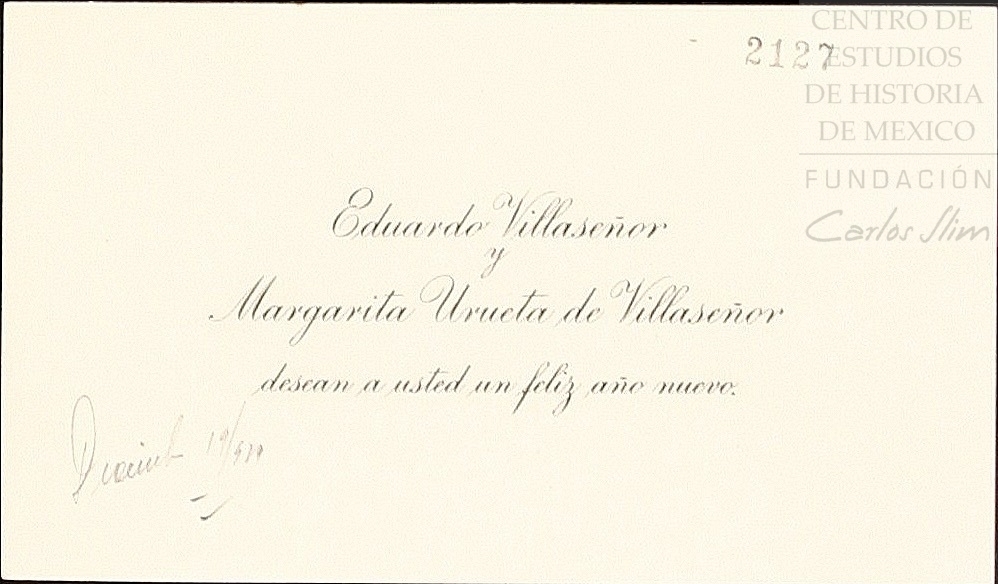 2127
CENTRO DE
ESTUDIOS
DE HISTORIA
DE MEXICO
FUNDACIÓN
Carlos Slim
Eduardo Villaseñor
y
Margarita Urueta de Villaseñor
desean a usted un feliz año nuevo.